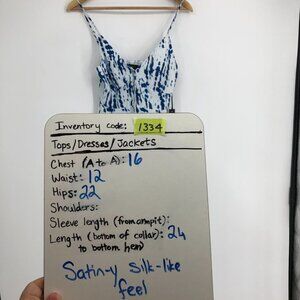 Inventory code: 1334
Tops/Dresses/Jackets
Chest (A to A): 16
Waist: 12
Hips: 22
Shoulders:
Sleeve length (from armpit):
Length (bottom of collar): 24
to bottom hem)
Satin-y silk-like
feel